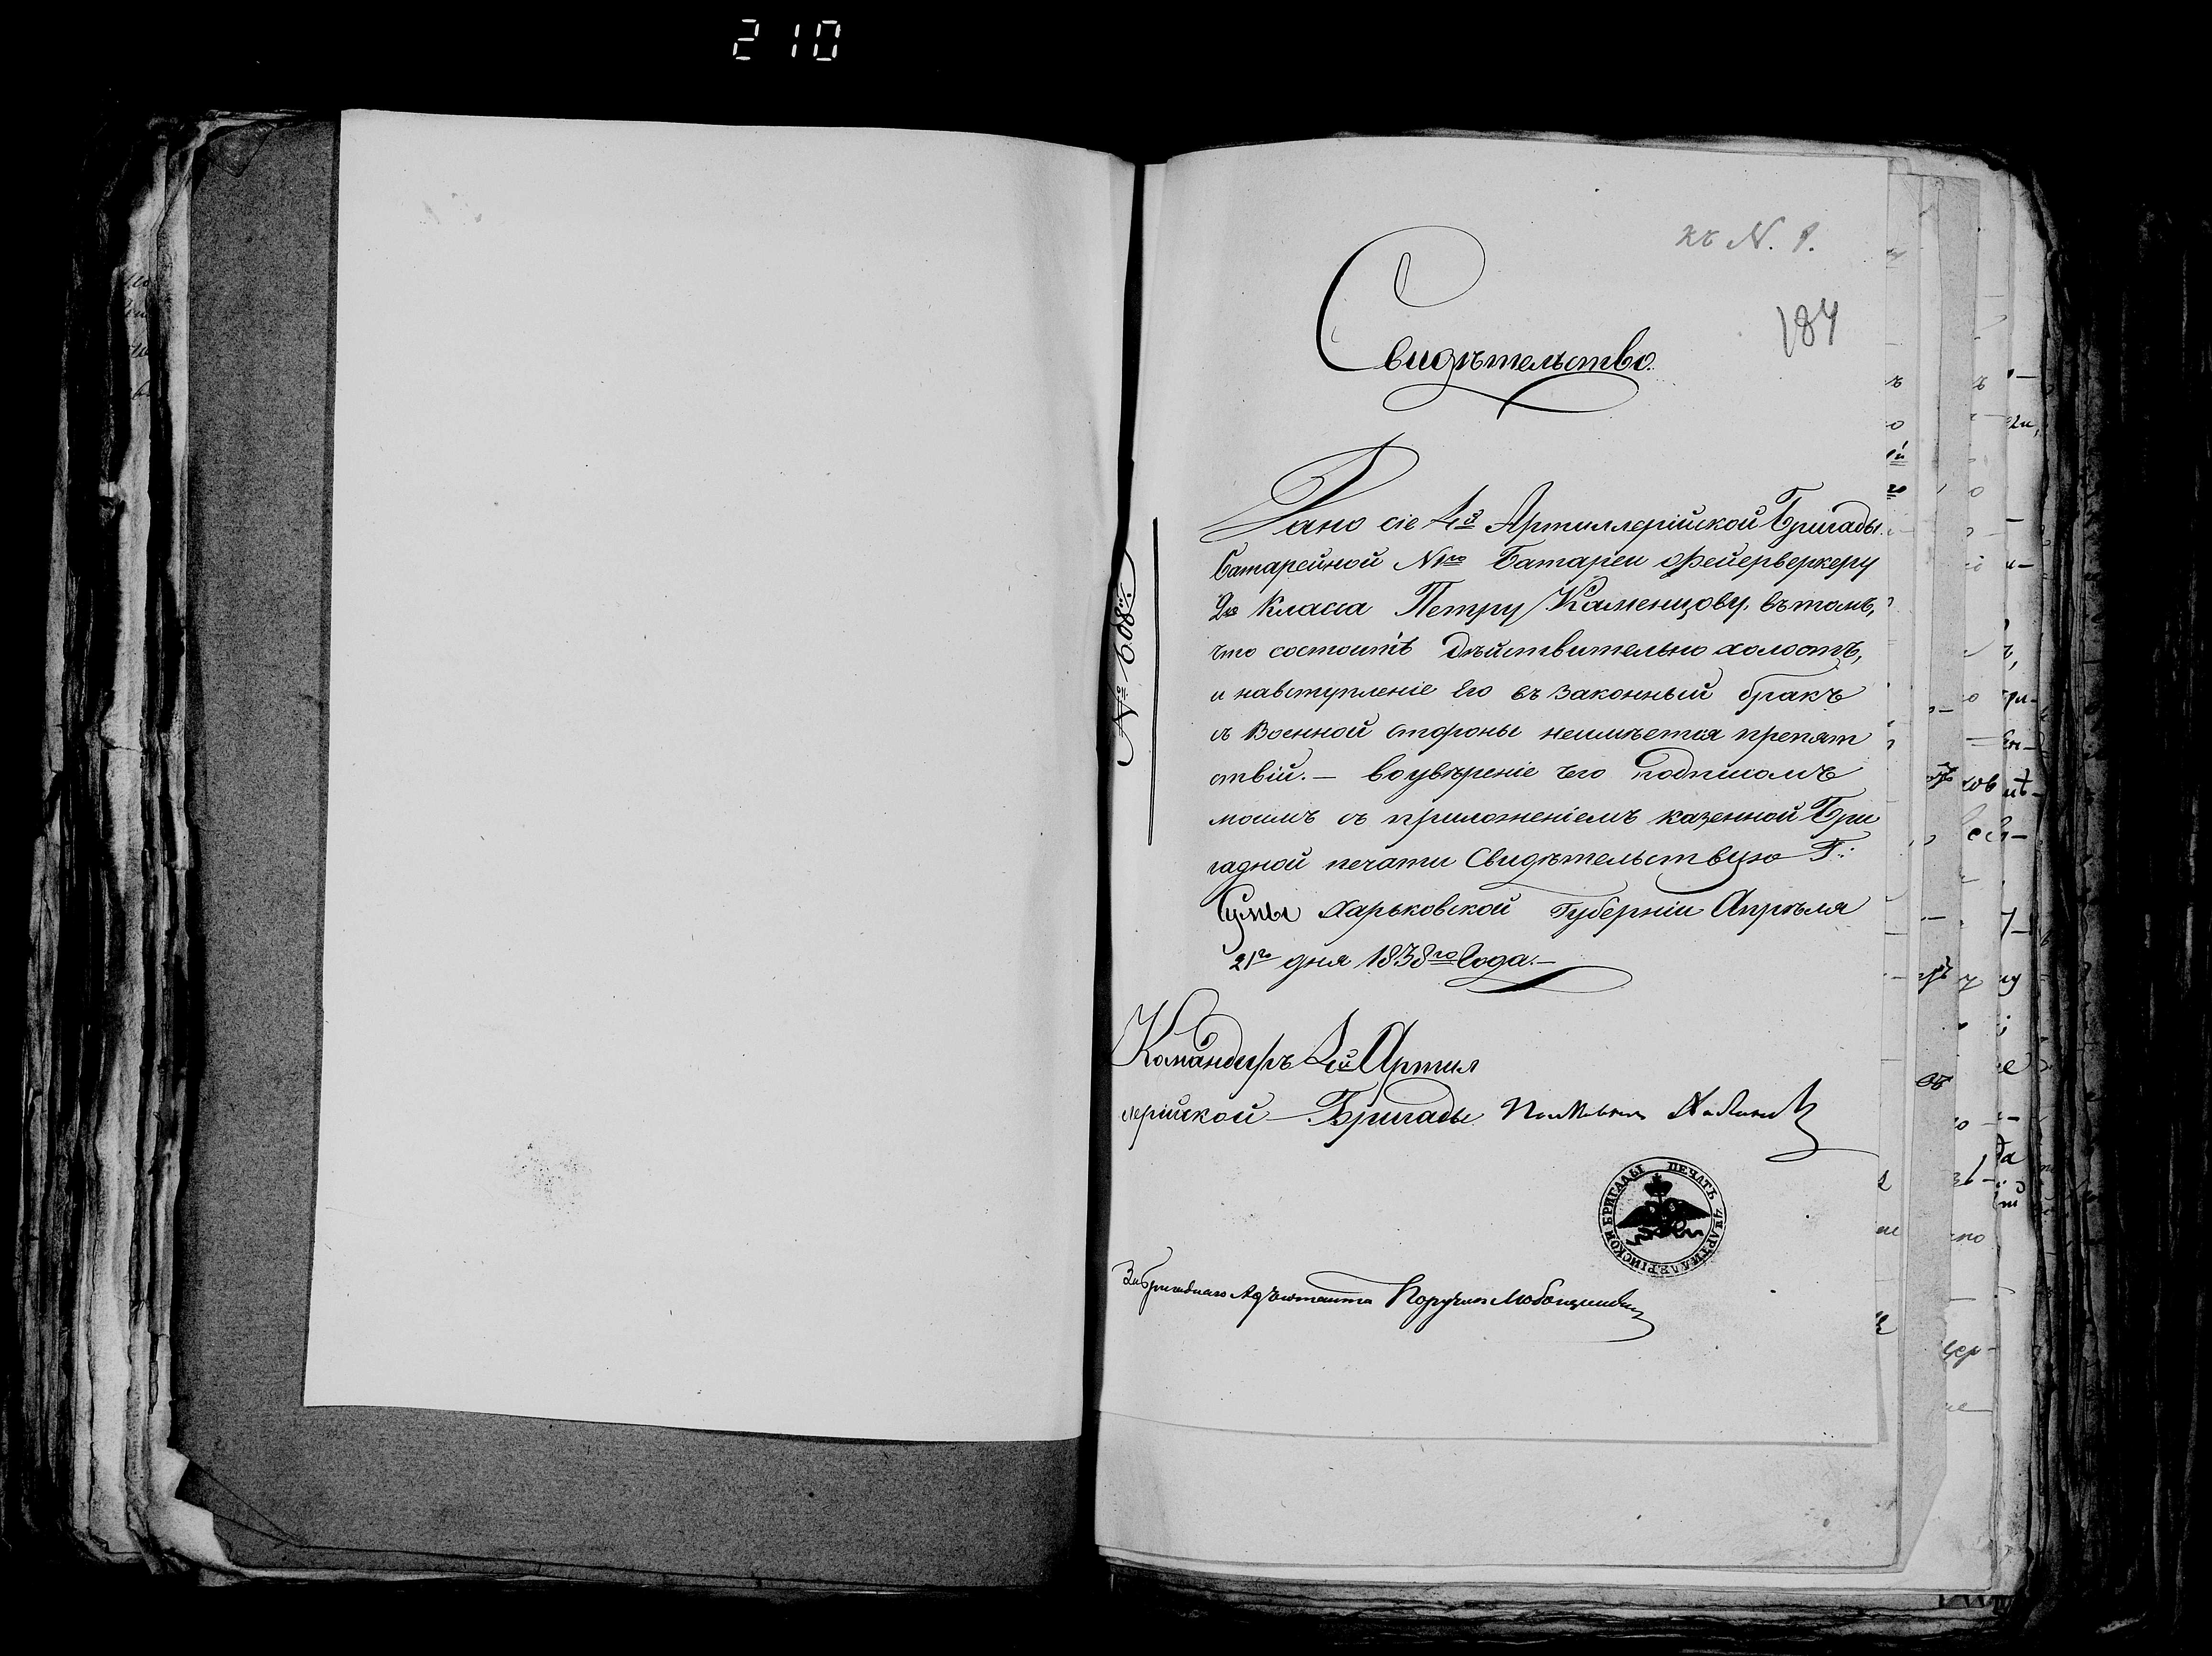 210
къ N. 1.
184
Свидѣтельство.
Дано сіе 4й Артиллерійской Бригады
батарейной №1го Батареи Фейерверкеру
2го Класса Петру Каменцову, въ томъ,
что состоитъ дѣйствительно холостъ,
и навступленіе Его въ законный бракъ
съ Военной стороны неимѣется препят
ствій. — Во увѣреніе чего подписомъ
моимъ съ приложеніемъ казенной Бри
гадной печати Свидѣтельствую Г:
Сумы Харьковской Губерніи Апрѣля
21го дня 1838го Года. —
№ 608й
Командиръ 4й Артил
лерійской Бригады
ПЕЧАТЬ 4й АРТИЛЛЕРІЙСКОЙ БРИГАДЫ
За Бригаднаго Адъютанта Поручикъ